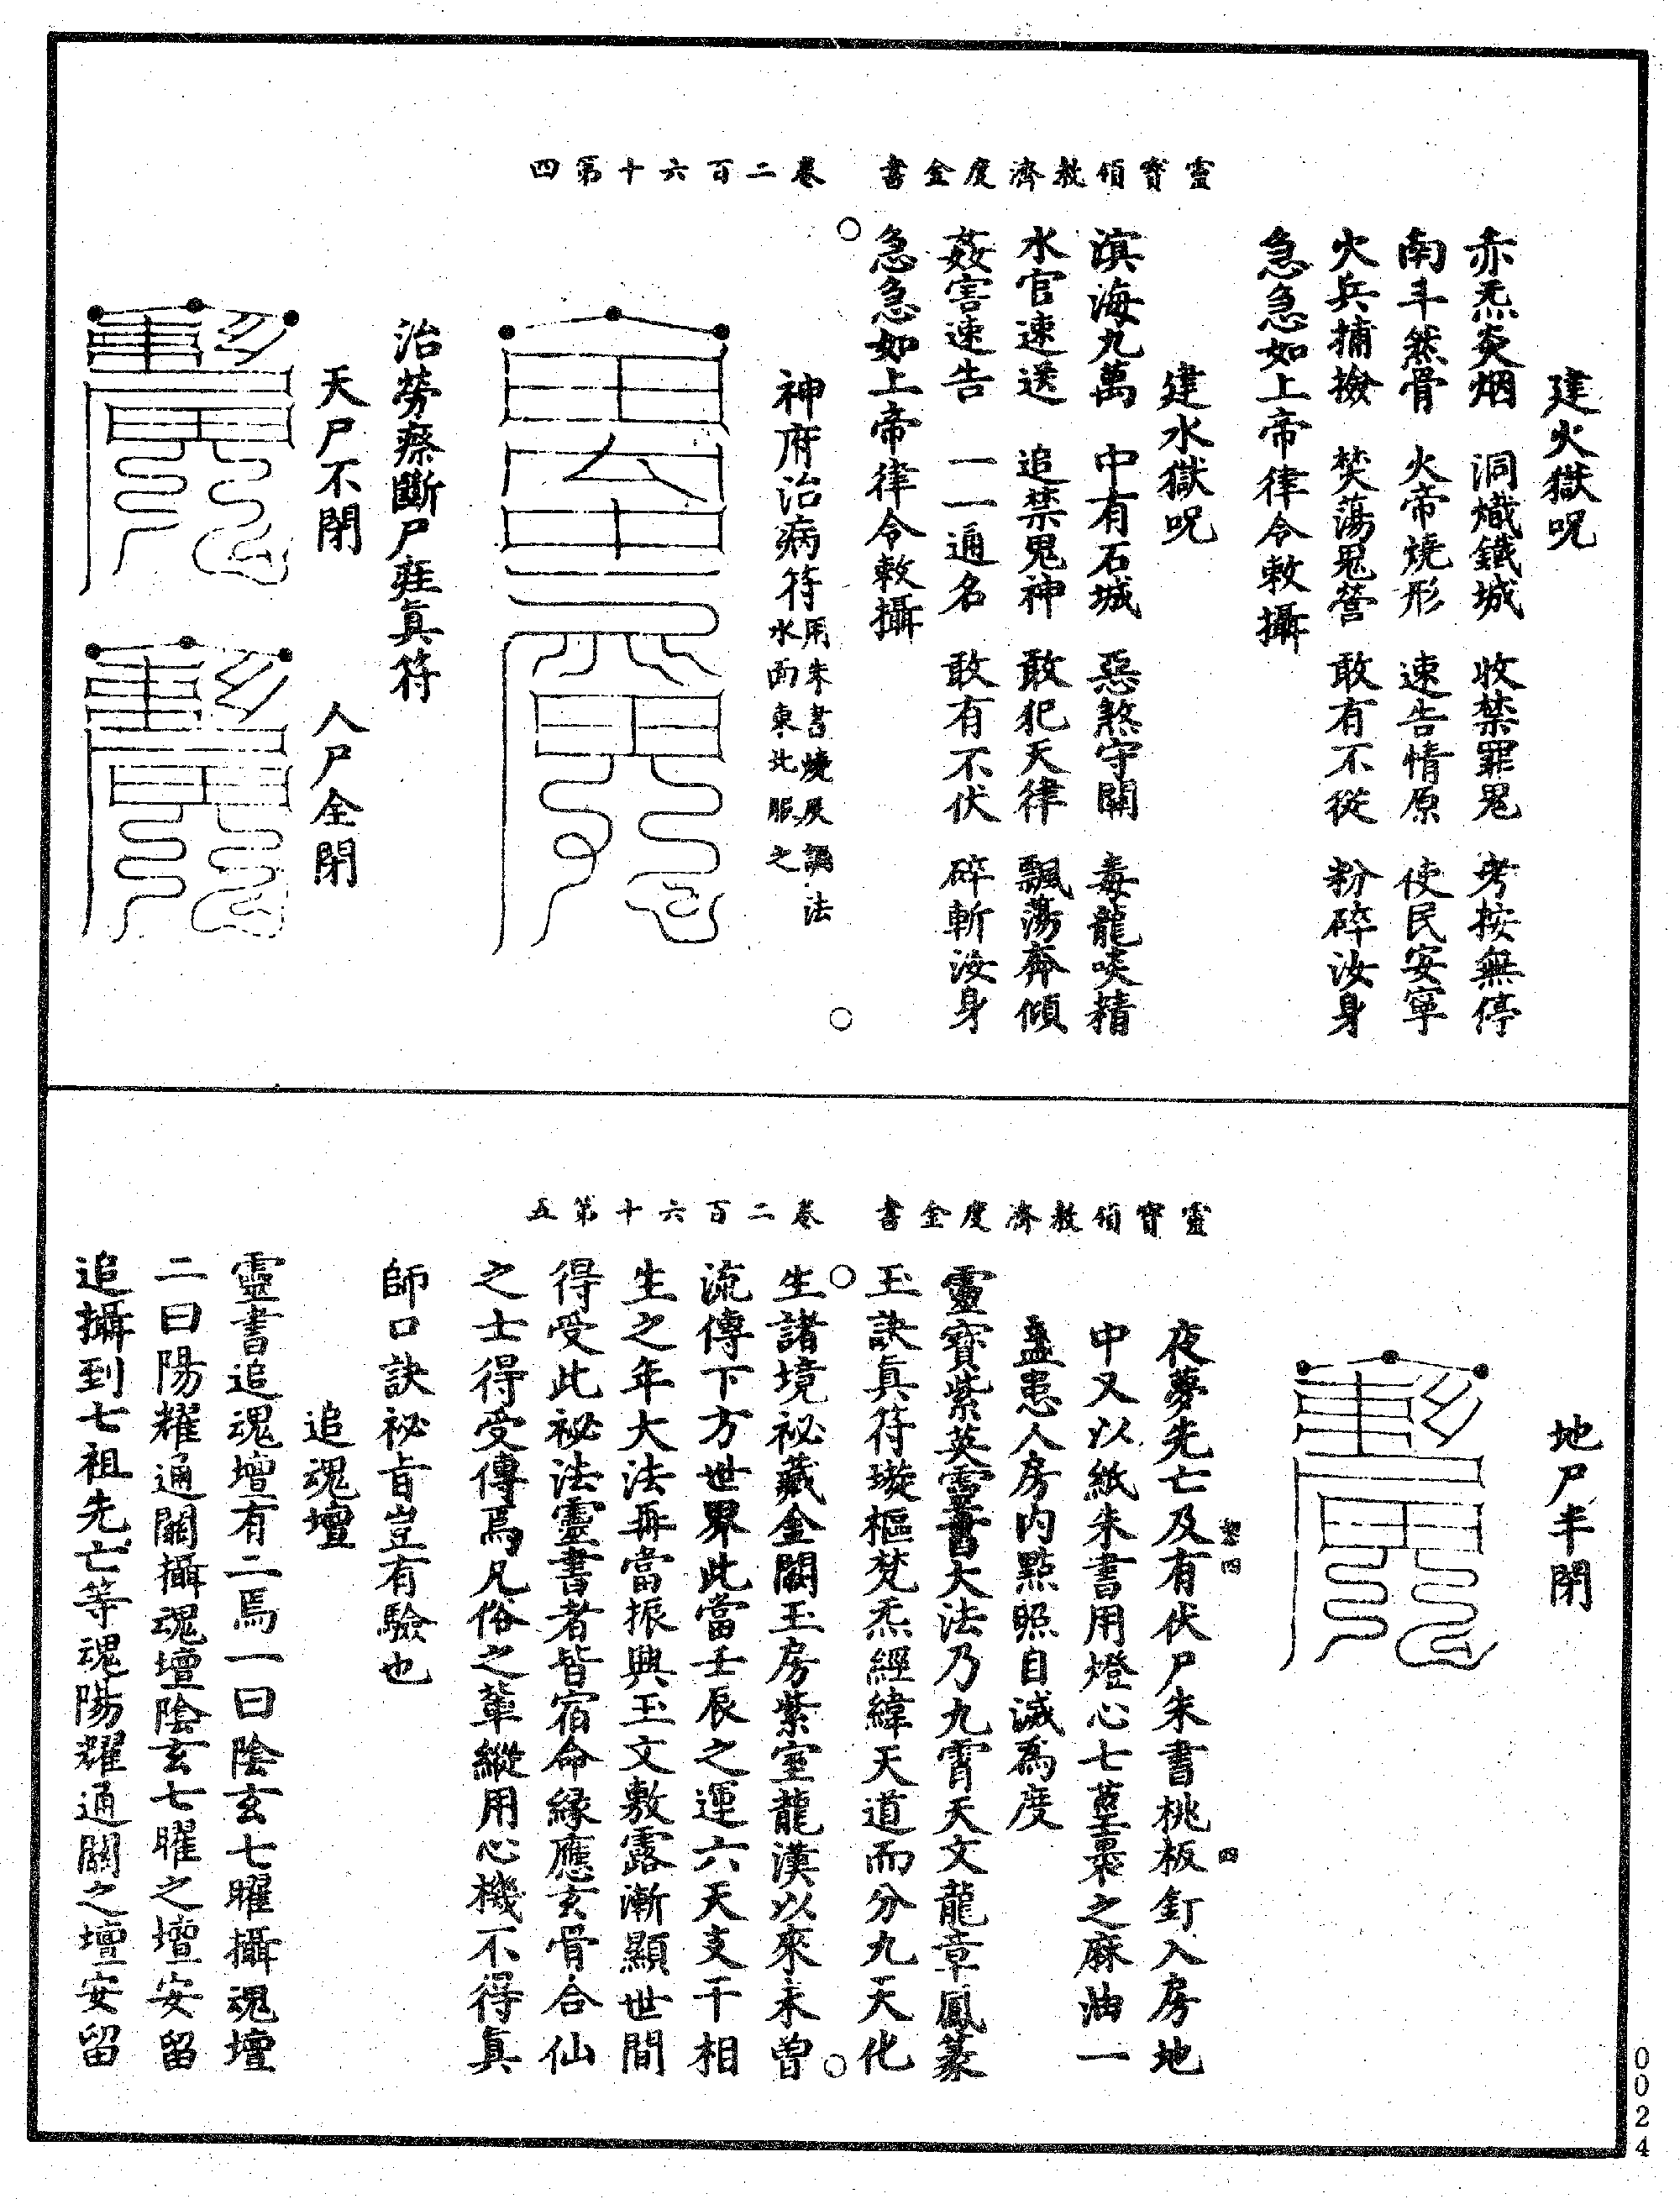 靈寶領教濟度金書　卷二百六十第四
建火獄呪
赤炁炎烟　洞熾鐵城　收禁罪鬼　考按無停
南斗然骨　火帝燒形　速告情原　使民安寧
火兵捕撿　焚蕩鬼營　敢有不從　粉碎汝身
急急如上帝律令敕攝
建水獄呪
溟海九萬　中有石城　惡煞守關　毒龍啖精
水官速送　追禁鬼神　敢犯天律　飄蕩奔傾
姦害速告　一一通名　敢有不伏　碎斬汝身
急急如上帝律令敕攝
神府治病符用朱書燒灰調法
水面東北服之
治勞瘵斷尸疰真符
天尸不閉
人尸全閉
靈寶領教濟度金書　卷二百六十第五
地尸半閉
夜夢先亡及有伏尸朱書桃板釘入房地
中又以紙朱書用燈心七莖裹之麻油一
盞患人房内點照自滅為度
靈寶紫英靈書大法乃九霄天文龍章鳳篆
玉訣真符璇樞梵炁經緯天道而分九天化
生諸境祕藏金闕玉房紫室龍漢以來未曾
流傳下方世界此當壬辰之運六天支干相
生之年大法再當振興玉文敷露漸顯世間
得受此祕法靈書者皆宿命緣應玄骨合仙
之士得受傳焉凡俗之輩縱用心機不得真
師口訣祕旨豈有驗也
追魂壇
靈書追魂壇有二焉一曰陰玄七曜攝魂壇
二曰陽耀通關攝魂壇陰玄七曜之壇安留
追攝到七祖先亡等魂陽耀通關之壇安留
0024